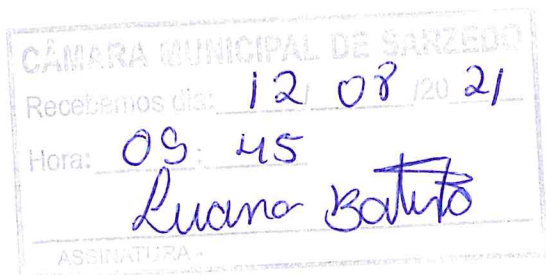 CÂMARA MUNICIPAL DE SARZEDO
Recebemos dia: 12 / 08 /20 21
Hora: 09 : 45
Luana Batista
ASSINATURA -